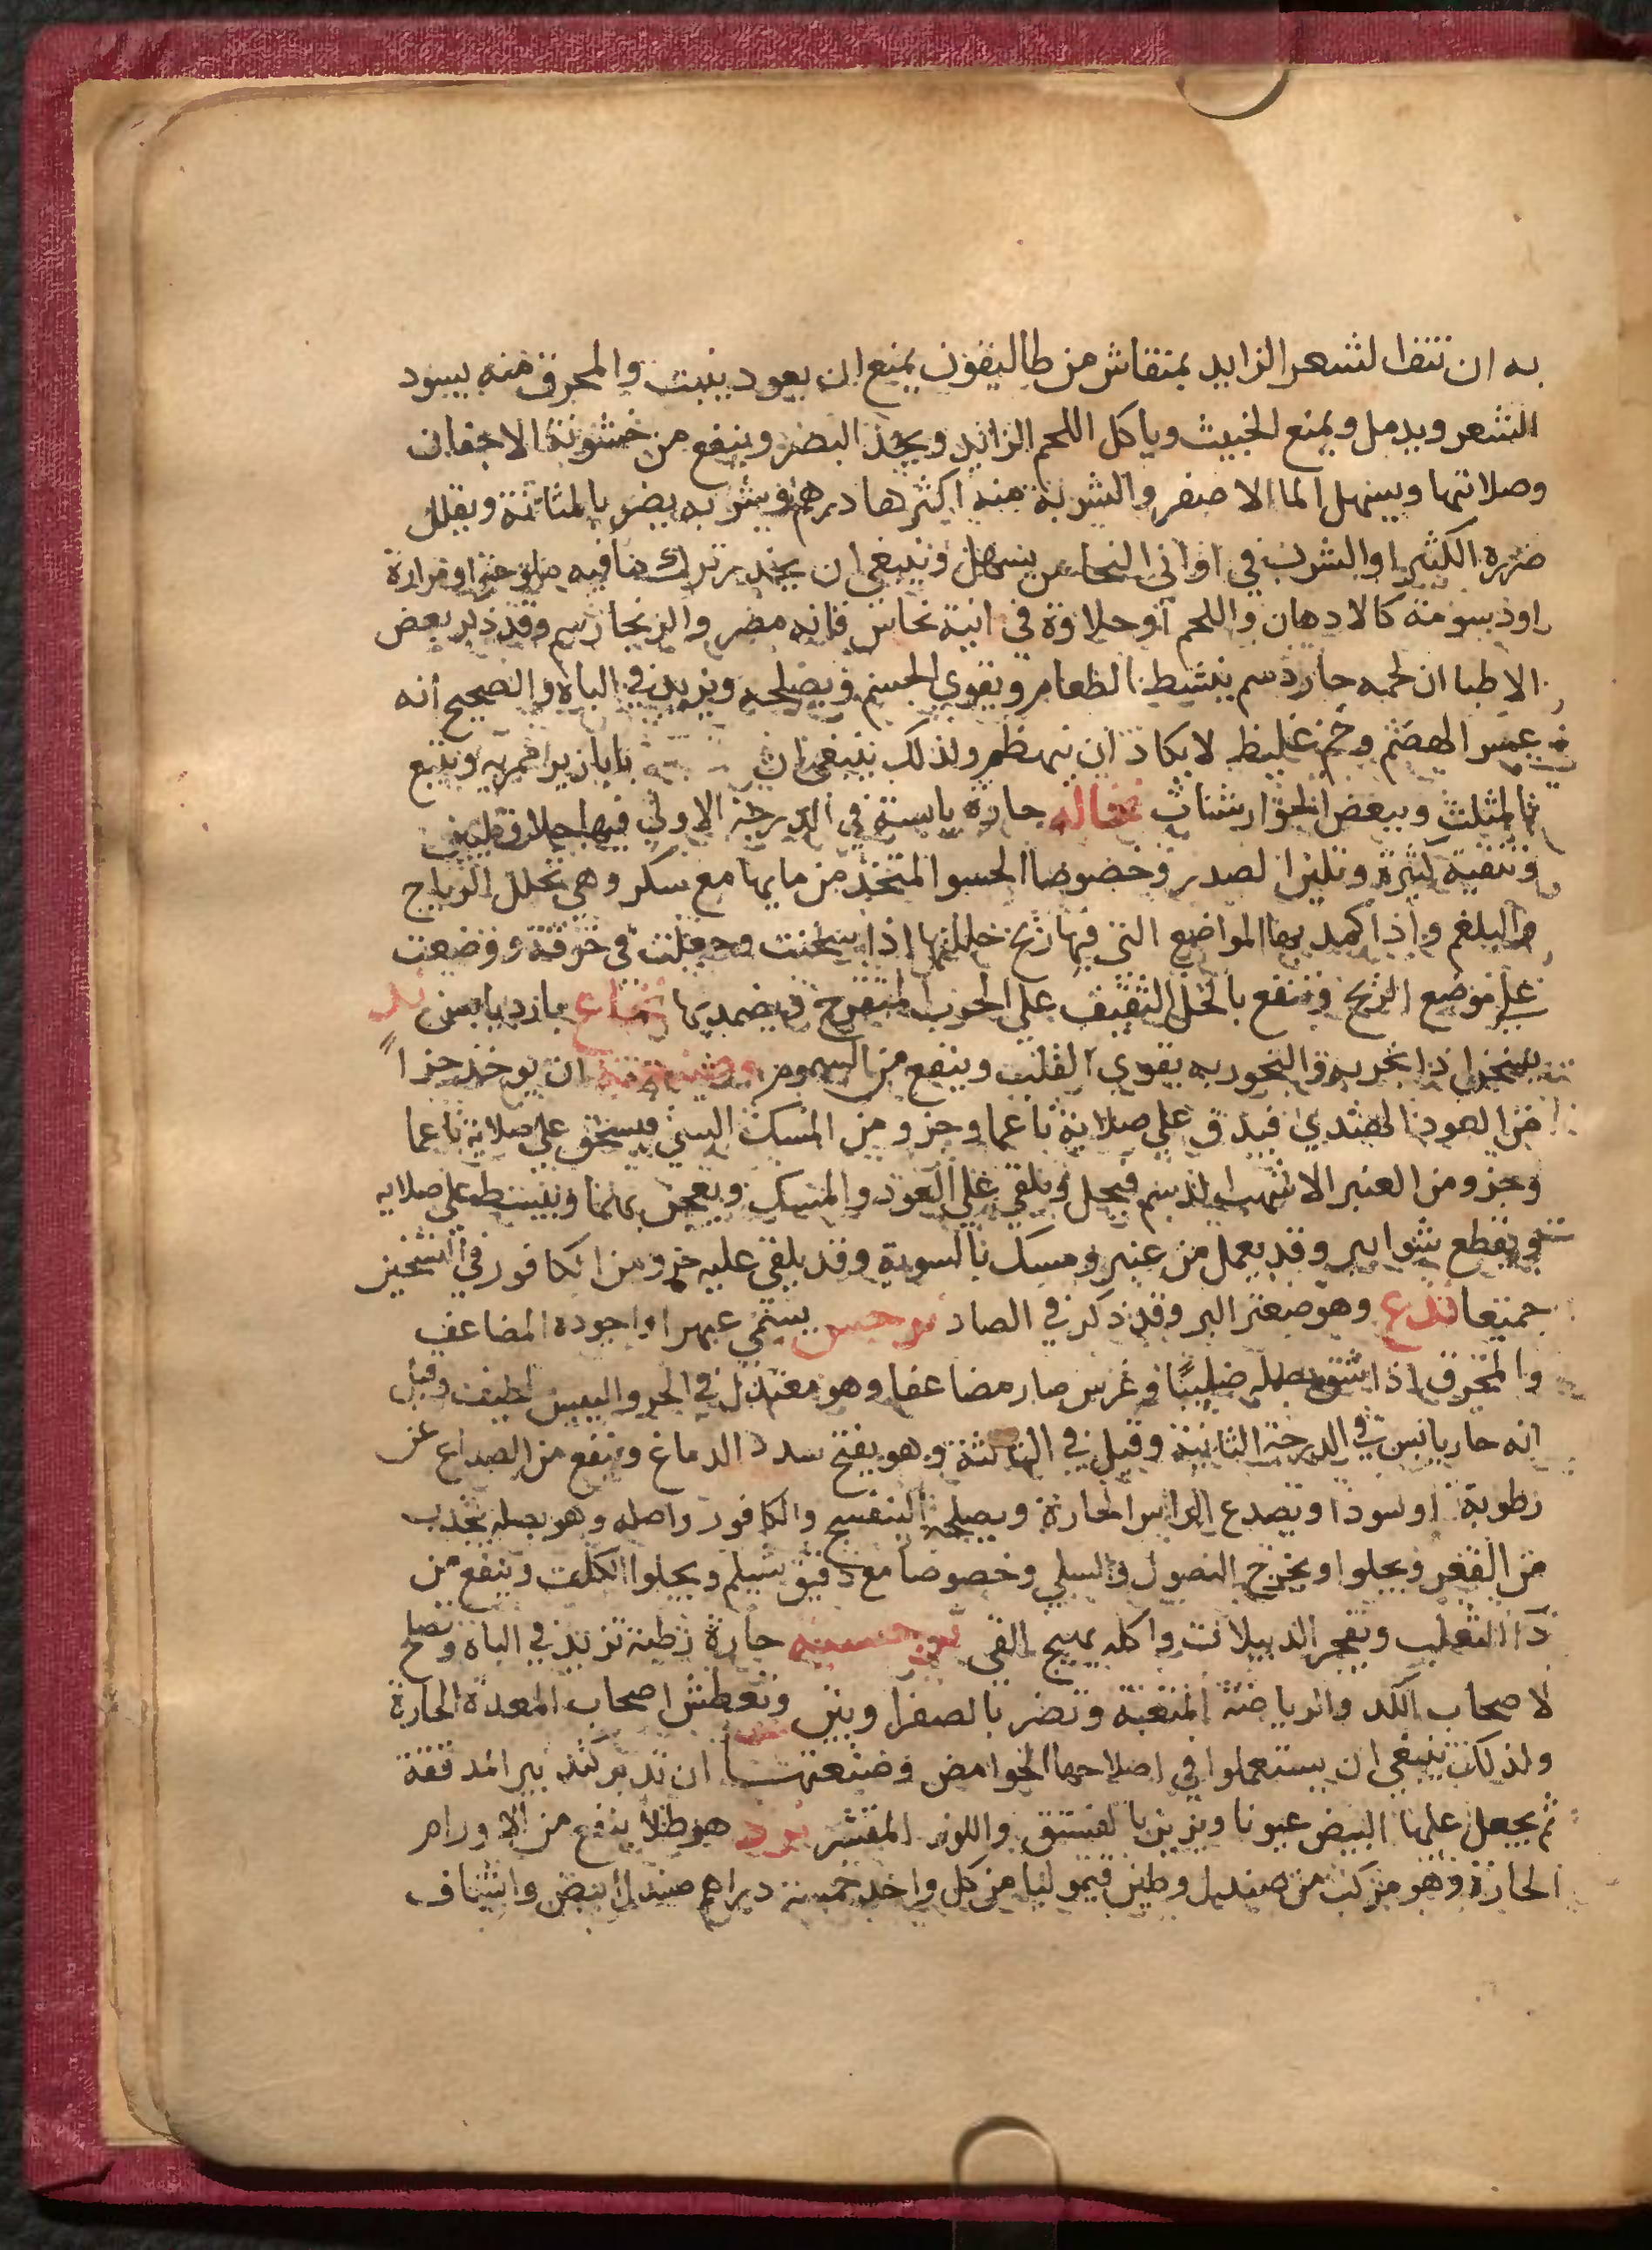 به ان تنتف الشعر الزايد بمنقاش من طاليقون يمنع ان يعود ينبت والمحرق منه يسود
الشعر ويدمل ويمنع الخبيث وياكل اللحم الزائد ويحد البصر وينفع من خشونة الاجفان
وصلابتها ويسهل الما الاصفر والشربة منه اكثرها درهم وشربه يضر بالمثانة ويقلل
ضرره الكثيرا والشرب في اواني النحاس يسهل وينبغي ان يحذر ترك ما فيه ملوحة او مرارة
او دسومة كالادهان واللحم او حلاوة في انية نحاس فانه مضر والزنجار سم وقد ذكر بعض
الاطبا ان لحمه حار دسم ينشيط الطعام ويقوي الجسم ويصلحه ويزيد في الباه والصحيح انه
عسر الهضم وخم غليظ لا يكاد ان ينهظم ولذلك ينبغي ان بابازير مريه ويتبع
بالمثلث وببعض الجوارشنات نخاله حارة يابسة في الدرجة الاولي فيها جلا وتليين
وتنقية كثيرة وتلين الصدر وخصوصا الحسو المتخذ من مايها مع سكر وهي تحلل الرياح
والبلغم واذا كمد بها المواضع التي فيها ريح حللتها اذا سخنت وجعلت في خرقة ووضعت
علي موضع الريح وتنفع بالخل الثقيف علي الجرب المتقرح ويضمد بها نخاع بارد يابس ند
يسخن اذا بخر به والبخور به يقوي القلب وينفع من السموم وصنعته ان يوخذ جزاً
من العود الهندي فيدق علي صلاية ناعما وجزو من المسك فيسحق علي صلاية ناعما
وجزو من العنبر الاشهب الدسم فيحل ويلقي علي العود والمسك ويعجن بهما ويبسط علي صلايه
ويقطع شوابير وقد يعمل من عنبر ومسك بالسوية وقد يلقي عليه جزو من الكافور في
جمتعا ندع وهو صعتر البر وقد ذكر في الصاد نرجس يسمي عبهر اواجوده المضاعف
والمحرق اذا شق بصله صليبًا وغرس صار مضاعفا وهو معتدل في الحر واليبس لطيف وقيل
انه حار يابس في الدرجة الثانية وقيل في الثالثة وهو يفتح سدد الدماغ وينفع من الصداع عن
رطوبة او سودا ويصدع الراس الحارة ويصلحه البنفسج والكافور واصله وهو بصله يجذب
من القعر ويجلوا ويخرج النصول والسلي وخصوصا مع دقيق شيلم ويجلوا الكلف وينفع من
دآ الثعلب ويفجر الدبيلات واكله يهيج القي نرجسيه حارة رطبة تزيد في الباه وتصلح
لاصحاب الكد والرياضة المتعبة وتضر بالصفراويين وتعطش اصحاب المعدة الحارة
ولذلك ينبغي ان يستعملوا في اصلاحها الحوامض وصنعتها ان تدبر كتدبير المدققة
ثم يجعل عليها البيض عيونا ويزين بالفستق واللوز المقشر نرد هو طلا ينفع من الاورام
الحارة وهو مركب من صندل وطين قيموليا من كل واحد خمسة دراهم صندل ابيض واشياف